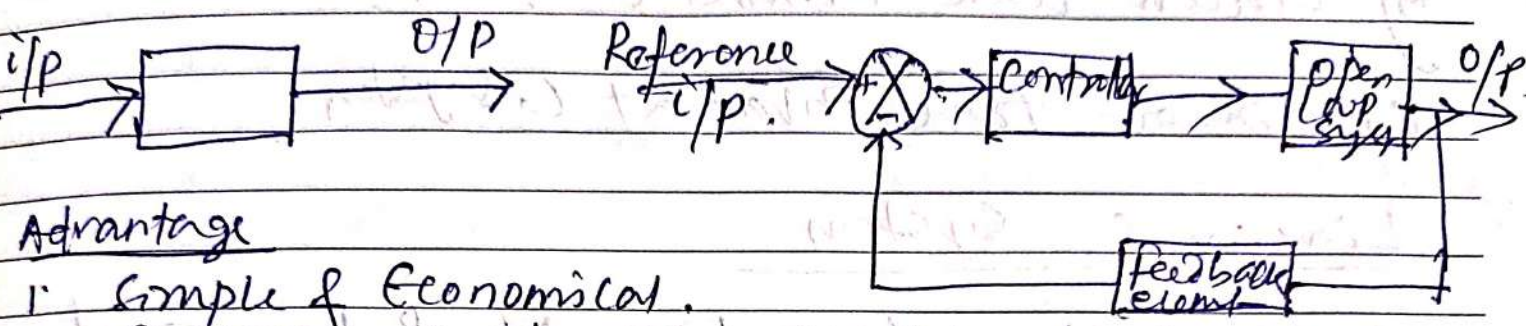 i/p O/P Reference i/p. + - Controller Open loop sys O/P.
Feedback elemt
Advantage
1. Simple & Economical.